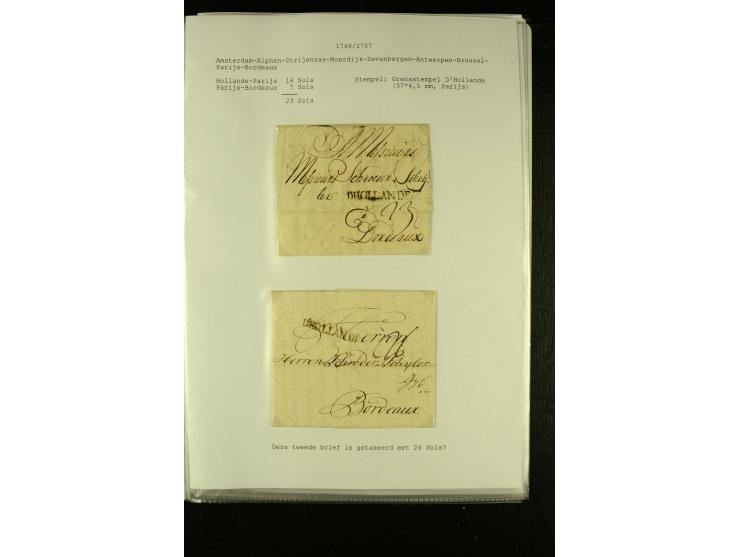 1749/1757
Amsterdam-Alphen-Strijensas-Moerdijk-Zevenbergen-Antwerpen-Brussel-
Parijs-Bordeaux
Hollande-Parijs 16 Sols
Parijs-Bordeaux 7 Sols
23 Sols
Stempel: Grensstempel D'Hollande
(37*4,5 mm, Parijs)
A Messieurs
Messieurs
DHOLLANDE
23
Bordeaux
D'HOLLANDE
Herren
Herren Schröder Schyler
Bordeaux
Deze tweede brief is getaxeerd met 26 Sols?